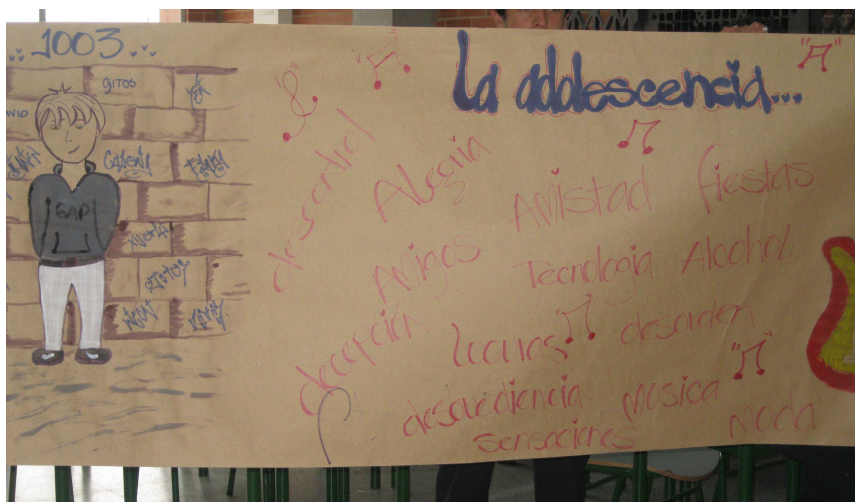 ..1003...
La adolescencia...
gitos
GAP
descontrol
Alegria
Amistad
fiestas
Amigos
Tecnologia
Alcohol..
decepción
locuras
desorden
desovediencia
Mosica
sensaciones
Moda